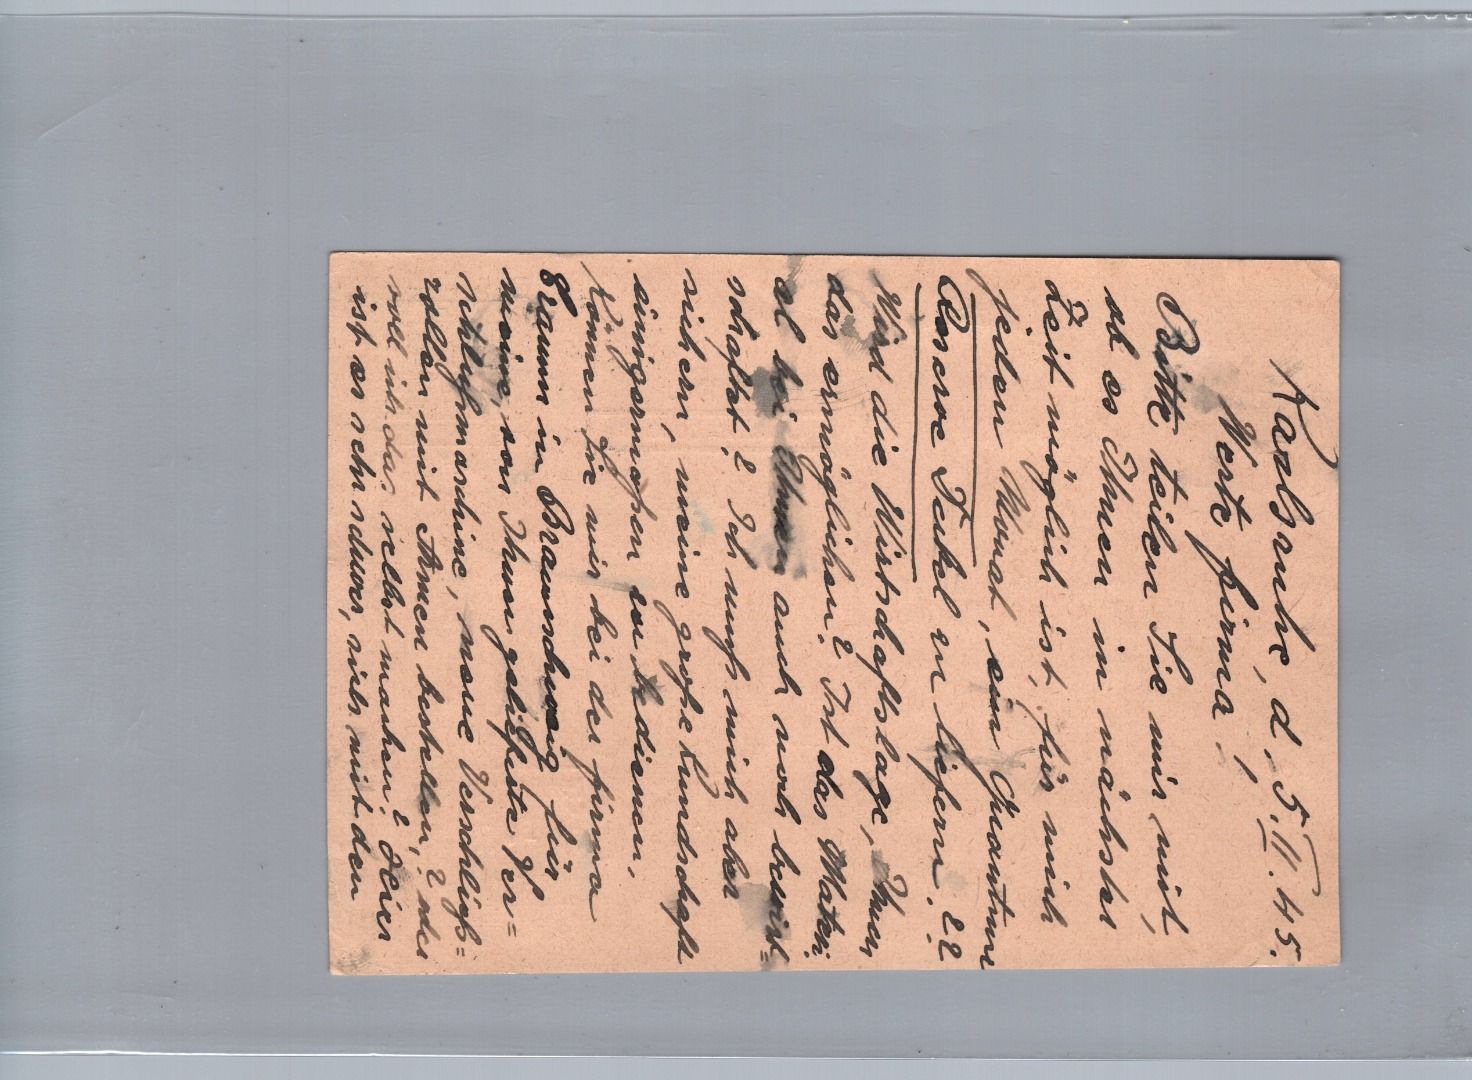 Karlsruhe, d. 5. II. 45.
Werte Firma!
Bitte teilen Sie mir mit,
ob es Ihnen in nächster
Zeit möglich ist, für mich
jeden Monat, ein Quantum
zu liefern. ??
Wird die Wirtschaftslage, Ihnen
das ermöglichen? Ist das Materi=
al bei Ihnen auch noch bewirt=
schaftet? Ich muß mich aber
sichern, meine große Kundschaft
einigermaßen zu bedienen.
Können Sie mir bei der Firma
in Braunschweig für
meine, von Ihnen gelieferte Ver=
schlußmaschine, neue Verschluß=
rollen mit Armen bestellen,? oder
soll ich das selbst machen? Hier
ist es sehr schwer, sich mit den